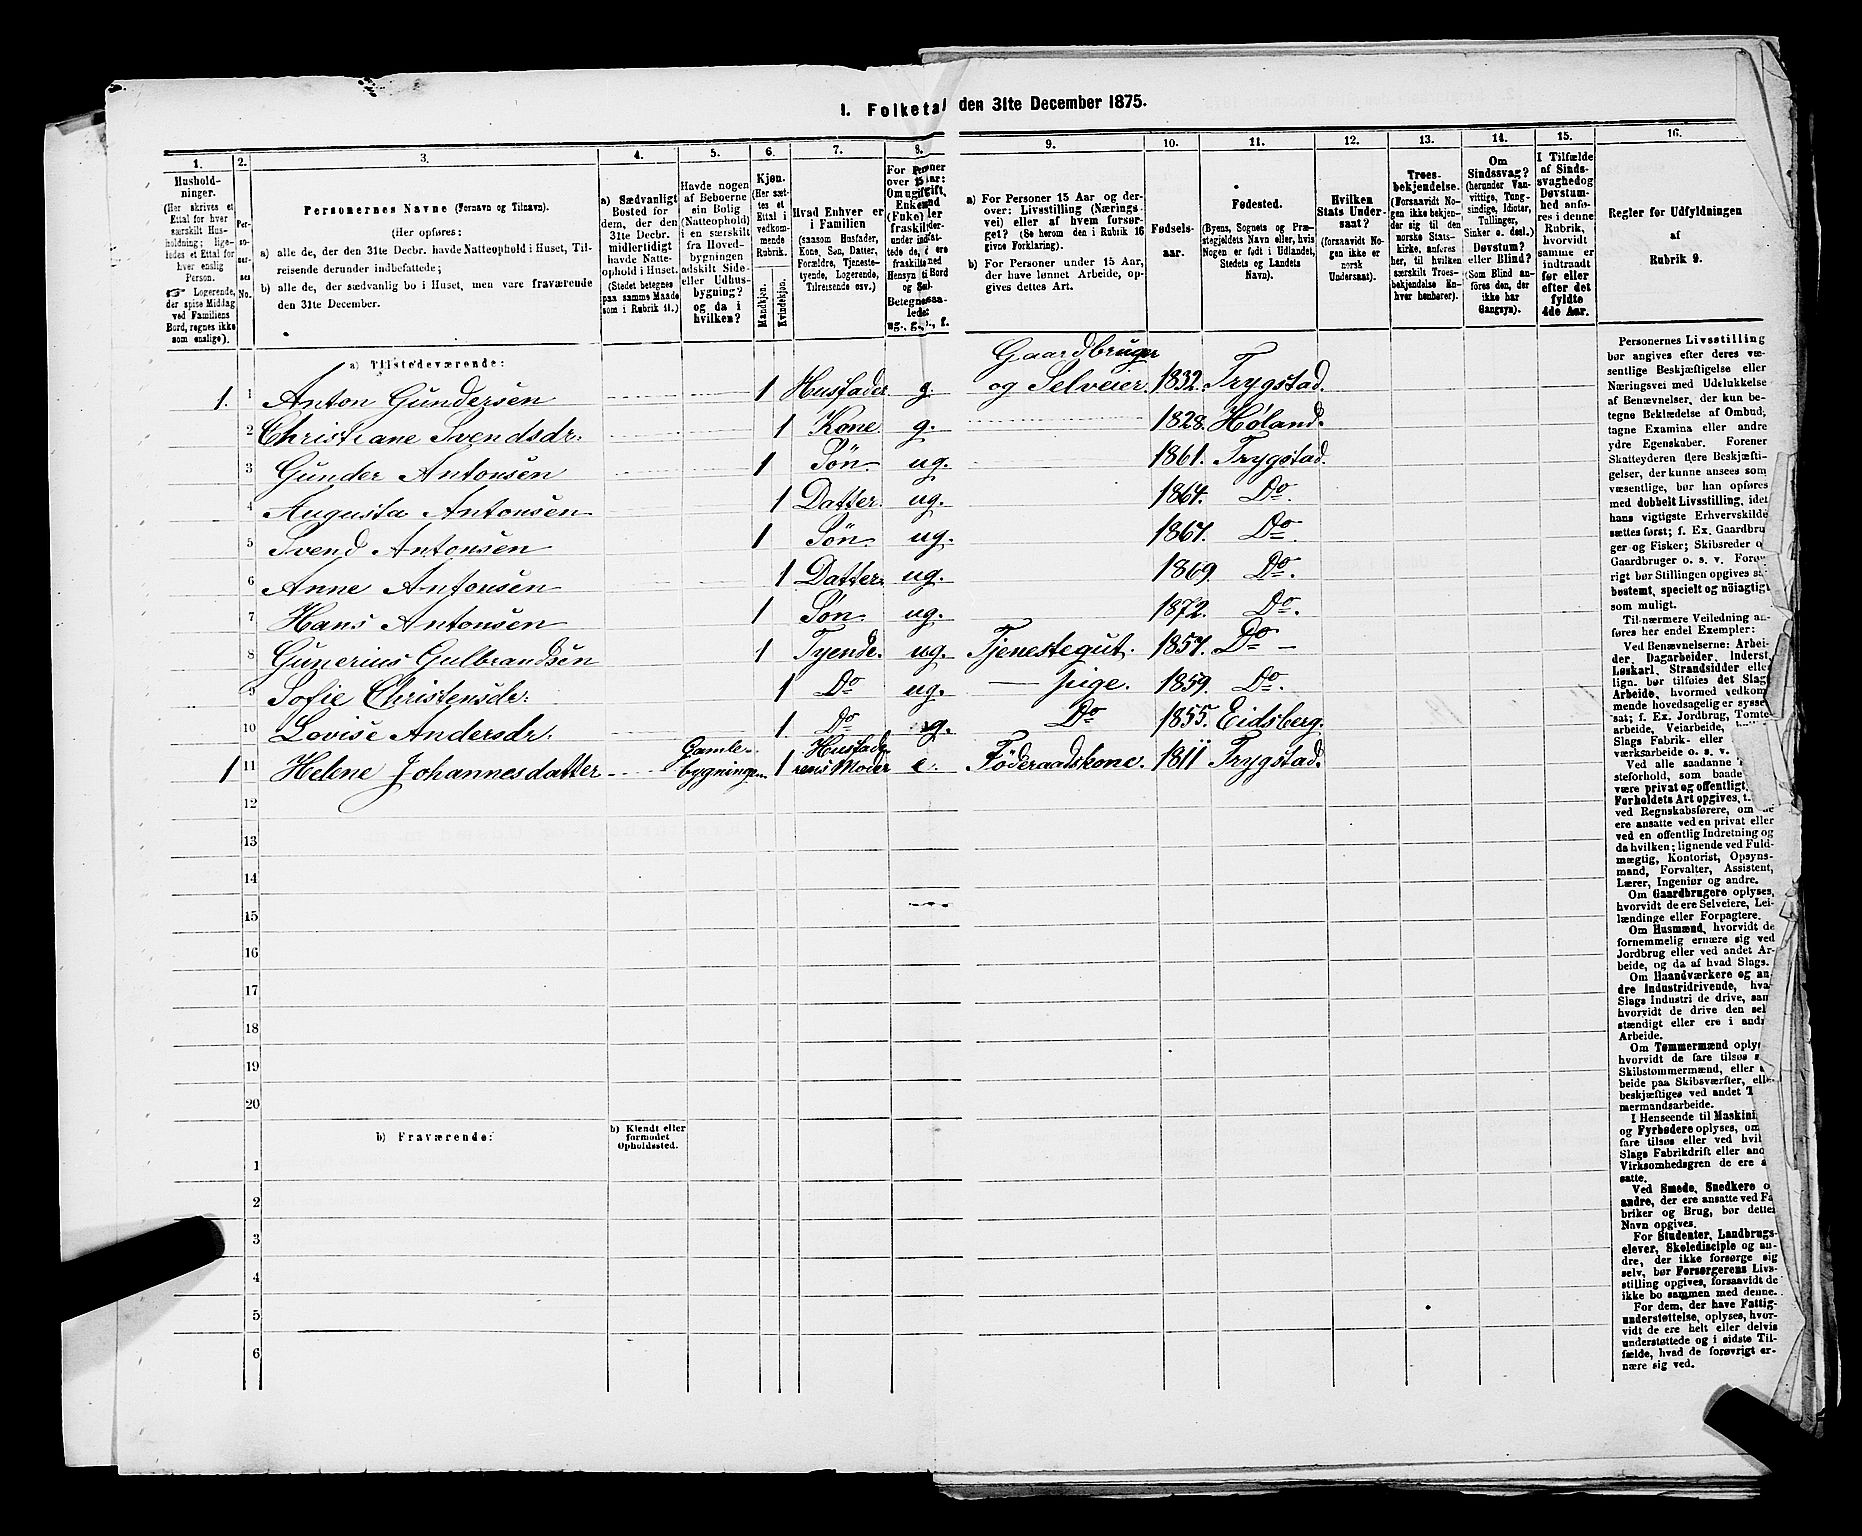 1. Folketal den 31te December 1875.
1. 2. 3. 4. 5. 6. 7. 8. 9. 10. 11. 12. 13. 14. 15. 16.
Hushold-
ninger.
(Her skrives et
Ettal for hver
særskilt Hus-
holdning; lige-
ledes et Ettal for
hver enslig
Person.
☞ Logerende,
der spise Middag
ved Familiens
Bord, regnes ikke
som enslige).
Per-
so-
ner-
nes
No.
Personernes Navne (Fornavn og Tilnavn).
(Her opføres:
a) alle de, der den 31te Decbr. havde Natteophold i Huset, Til-
reisende derunder indbefattede;
b) alle de, der sædvanlig bo i Huset, men vare fraværende
den 31te December.
a) Sædvanligt
Bosted for
dem, der den
31te Decbr.
midlertidigt
havde Natte-
ophold i Huset.
(Stedet betegnes
paa samme Maade
som i Rubrik 11.)
Havde nogen
af Beboerne
sin Bolig
(Natteophold)
i en særskilt
fra Hoved-
bygningen
adskilt Side-
eller Udhus-
bygning?
og da i
hvilken?
Kjøn.
(Her sæt-
tes et
Ettal i
vedkom-
mende
Rubrik.
Mandkjøn.
Kvindekjøn.
Hvad Enhver er
i Familien
(saasom Husfader,
Kone, Søn, Datter,
Forældre, Tjeneste-
tyende, Logerende,
Tilreisende osv.)
For Personer
over 15 Aar:
Om ugift,
Betegnes saa-
ledes:
ug., g., e., f.
a) For Personer 15 Aar og der-
over: Livsstilling (Nærings-
vei) eller af hvem forsør-
get? (Se herom den i Rubrik 16
givne Forklaring).
b) For Personer under 15 Aar,
der have lønnet Arbeide, op-
gives dettes Art.
Fødsels-
aar.
Fødested.
(Byens, Sognets og Præ-
stegjeldets Navn eller, hvis
Nogen er født i Udlandet,
Stedets og Landets
Navn).
Hvilken
Stats Under-
saat?
(forsaavidt No-
gen ikke er
norsk
Undersaat).
Troes-
bekjendelse.
(Forsaavidt No-
gen ikke bekjen-
der sig til den
norske Stats-
kirke, anføres
her, til hvilken
særskilt Troes-
bekjendelse En-
hver henhører).
Om
Sindssvag?
(herunder Van-
vittige, Tung-
sindige, Idioter,
Tullinger,
Sinker o. desl.)
Døvstum?
eller Blind?
(Som Blind an-
føres den, der
ikke har
Gangsyn).
I Tilfælde
af Sinds-
svaghed og
Døvstum-
hed anfø-
res i denne
Rubrik,
hvorvidt
samme er
indtraadt
før eller
efter det
fyldte
4de Aar.
Regler for Udfyldningen
af
Rubrik 9.
a) Tilstedeværende:
Gaardbruger
1. 1 Anton Gundersen 1 Husfader g. og Selveier. 1832. Trygstad.
2 Christiane Svendsdr: 1 Kone g. 1828. Høland.
3 Gunder Antonsen 1 Søn ug. 1861. Trygstad.
4 Augusta Antonsen 1 Datter. ug. 1864. Do.
5 Svend Antonsen 1 Søn. ug. 1867. Do.
6 Anne Antonsen 1 Datter. ug. 1869. Do.
7 Hans Antonsen 1 Søn. ug. 1872. Do.
8 Gunerius Gulbrandsen 1 Tyende. ug. Tjenestegut. 1857. Do –
9 Sofie Christensdr: 1 Do ug. — pige. 1859. Do.
10 Lovise Andersdr. 1. Do ug. Do 1855. Eidsberg.
1 11 Helene Johannesdatter Gamle-
bygningen 1 Husfade-
rens Moder e. Föderaadskone. 1811 Trygstad.
12
13
14
15
16
17
18
19
20
b) Fraværende:
b) Kjendt eller
formodet
Opholdssted.
1
2
3
4
5
6
Personernes Livsstilling
bør angives efter deres væ-
sentlige Beskjæftigelse eller
Næringsvei med Udelukkelse
af Benævnelser, der kun be-
tegne Beklædelse af Ombud,
tagne Examina eller andre
ydre Egenskaber. Forener
Skatteyderen flere Beskjæfti-
gelser, der kunne ansees som
væsentlige, bør han opføres
med dobbelt Livsstilling, idet
hans vigtigste Erhvervskilde
sættes først; f. Ex. Gaardbru
ger og Fisker; Skibsreder o
Gaardbruger o. s. v. Forøv
rigt bør Stillingen opgives sa
bestemt, specielt og nöiagtigt
som muligt.
Til nærmere Veiledning an-
føres her endel Exempler:
Ved Benævnelserne: Arbei-
der, Dagarbeider, Inderst
Løskarl, Strandsidder elle
lign. bør tilføies det Slag
Arbeide, hvormed vedkom
mende hovedsagelig er sysse
sat; f. Ex. Jordbrug, Tomte
arbeide, Veiarbeide,
Slags Fabrik- eller
værksarbeide o. s. v.
Ved alle saadanne
steforhold, som baade
være privat og offentligt,
Forholdets Art opgives, t.
ved Regnskabsførere, om de
ere ansatte ved en privat eller
ved en offentlig Indretning og
da hvilken; lignende ved Fuld-
mægtig, Kontorist, Opsyns-
mand, Forvalter, Assistent,
Lærer, Ingeniør og andre.
Om Gaardbrugere oplyses,
hvorvidt de ere Selveiere, Lei-
lændinge eller Forpagtere.
Om Husmænd, hvorvidt de
fornemmelig ernære sig ved
Jordbrug eller ved andet Ar-
beide, og da af hvad Slags.
Om Haandværkere og an-
dre Industridrivende, hva
Slags Industri de drive, sam
hvorvidt de drive den sel
stændigt eller ere i andr
Arbeide.
Om Tømmermænd oply
hvorvidt de fare tilsøs
Skibstømmermænd, eller
beide paa Skibsværfter, elle
beskjæftiges ved andet T
mermandsarbeide.
I Henseende til Maskini
og Fyrbødere oplyses, om
fare tilsøs eller ved hvil
Slags Fabrikdrift eller and
Virksomhedsgren de ere a
satte.
Ved Smede, Snedkere o
andre, der ere ansatte ved Fa
briker og Brug, bør dette
Navn opgives.
For Studenter, Landbrugs-
elever, Skoledisciple og an-
dre, der ikke forsørge sig
selv, bør Forsørgerens Livs-
stilling opgives, forsaavidt de
ikke bo sammen med denne.
For dem, der have Fattig-
understøttelse, oplyses, hvor-
vidt de ere helt eller delvis
understøttede og i sidste Til-
fælde, hvad de forøvrigt er-
nære sig ved.